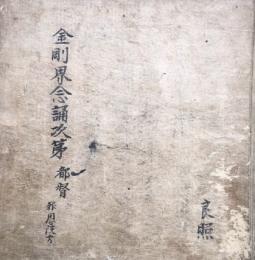 金剛界念誦次第 都督
良照